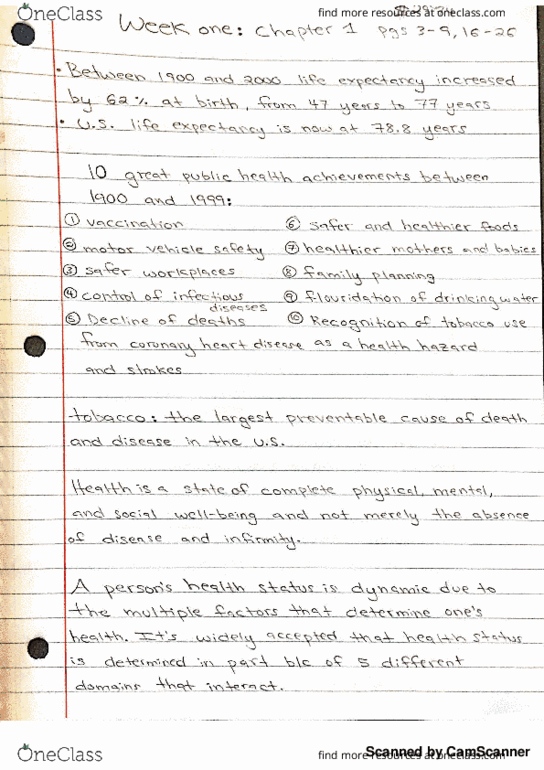 OneClass
find more resources at oneclass.com
Week one: Chapter 1 pgs 3-9, 16-26
• Between 1900 and 2000 life expectancy increased
by 62% at birth, from 47 years to 77 years
• U.S. life expectancy is now at 78.8 years
10 great public health achievements between
1900 and 1999:
① vaccination ⑥ safer and healthier foods
② motor vehicle safety ⑦ healthier mothers and babies
③ safer workplaces ⑧ family planning
④ control of infectious ⑨ flouridation of drinking water
diseases
⑤ Decline of deaths ⑩ Recognition of tobacco use
from coronary heart disease as a health hazard
and strokes
tobacco: the largest preventable cause of death
and disease in the U.S.
Health is a state of complete physical, mental,
and social well-being and not merely the absence
of disease and infirmity.
A person's health status is dynamic due to
the multiple factors that determine one's
health. It's widely accepted that health status
is determined in part b/c of 5 different
domains that interact.
OneClass
find more resources at oneclass.com
Scanned by CamScanner